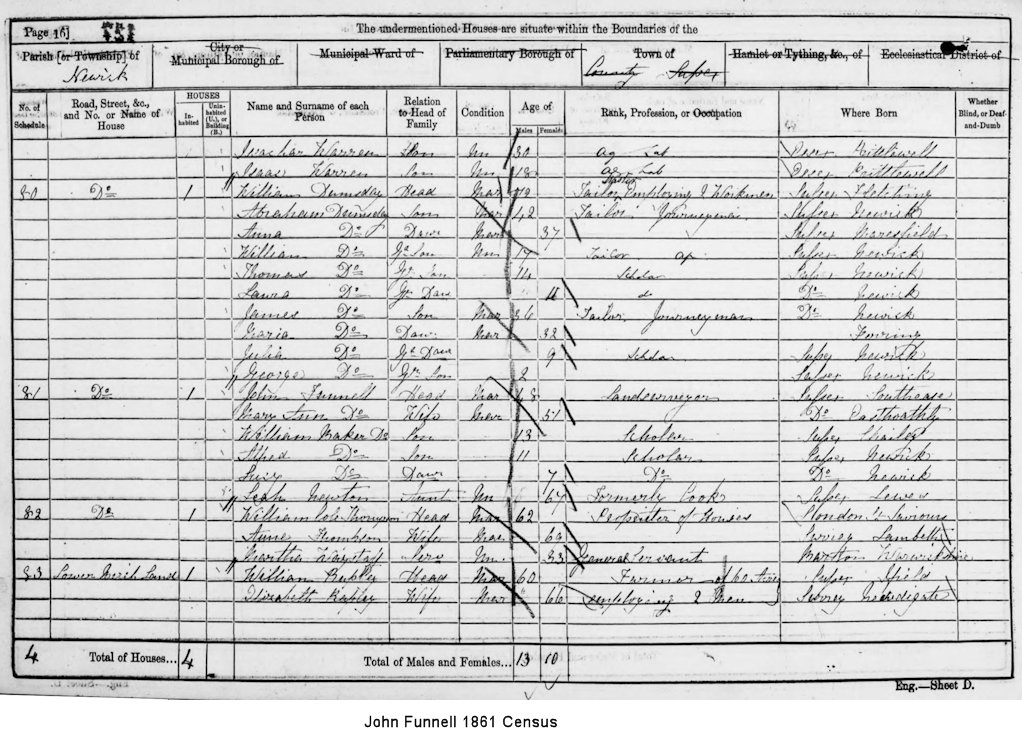 Page 16] 751 The undermentioned Houses are situate within the Boundaries of the
Parish [or Township] of City or Municipal Borough of Municipal Ward of Parliamentary Borough of Town of Hamlet or Tything, &c., of Ecclesiastical District of
Newick County Sussex
No. of Schedule Road, Street, &c., and No. or Name of House HOUSES Inhabited Uninhabited (U.), or Building (B.) Name and Surname of each Person Relation to Head of Family Condition Age of Males Females Rank, Profession, or Occupation Where Born Whether Blind, or Deaf-and-Dumb
Warren Son Un 30 Ag Lab
Isaac Warren Son Un 18 Ag Lab
80 Do 1 William Head Mar 79 Tailor Master Employing 2 Workmen Sussex Fletching
Abraham Son Mar 42 Tailor Journeyman Sussex Newick
Anna Do Daur Mar 37 Sussex Maresfield
William Do Gd Son Un 17 Tailor Ap Sussex Newick
Thomas Do Gr Son 14 Scholar Sussex Newick
Laura Do Gr Daur 11 do Do Newick
James Do Son Mar 36 Tailor Journeyman Do Newick
Maria Do Daur Mar 32
Julia Do Gd Daur 9 Scholar Sussex Newick
George Do Gr Son 2 Sussex Newick
81 Do 1 John Funnell Head Mar 68 Landsurveyor Sussex Southease
Mary Ann Do Wife Mar 51 Do
William Baker Do Son 13 Scholar Sussex Chailey
Alfred Do Son 11 Scholar Sussex Newick
Do Daur 7 Do Do Newick
Leah Newton Aunt Un 67 Formerly Cook Sussex Lewes
82 Do 1 William Cole Thompson Head Mar 62 Proprietor of Houses London St Saviours
Thompson Wife Mar 60 Surrey Lambeth
Martha Serv Un 33 General Servant Warwickshire
83 Lower 1 William Head Mar 60 Farmer of 60 Acres Sussex Ifield
Elizabeth Wife Mar 66 employing 2 Men Surrey Newdigate
4 Total of Houses... 4 Total of Males and Females... 13 10
Eng.—Sheet D.
John Funnell 1861 Census